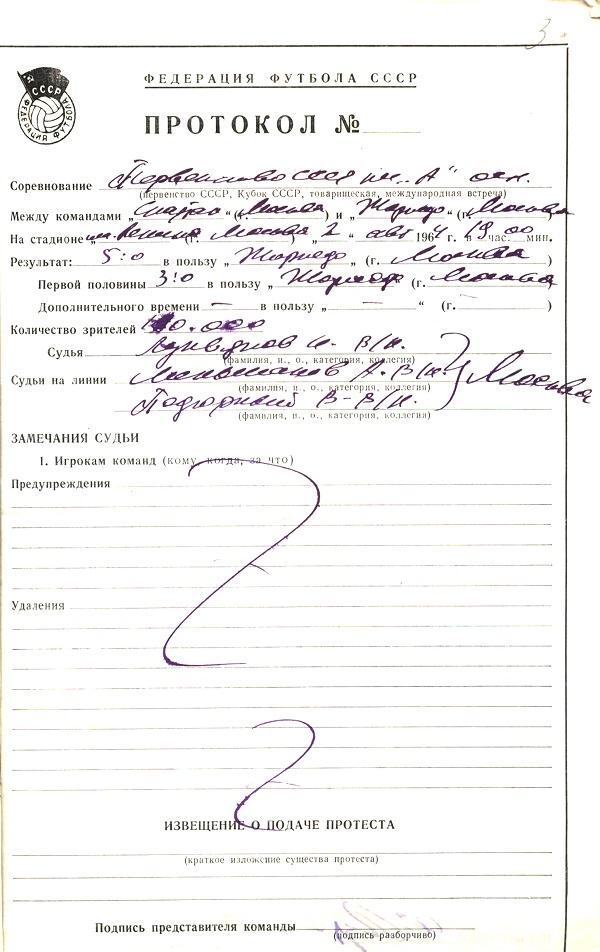 3
СССР
ФЕДЕРАЦИЯ ФУТБОЛА
ФЕДЕРАЦИЯ ФУТБОЛА СССР
ПРОТОКОЛ №
Соревнование Первенство СССР кл. „А“ осн.
(первенство СССР, Кубок СССР, товарищеская, международная встреча)
Между командами „Спартак“ (г. Москва) и „Торпедо“ (г. Москва
На стадионе им. Ленина (г. Москва) „2“ авг 1964 г. в 19 час. 00 мин.
Результат: 5:0 в пользу „Торпедо„ (г. Москва)
Первой половины 3:0 в пользу „Торпедо (г. Москва
Дополнительного времени — в пользу „ — “ (г. — )
Количество зрителей 0.000
Судья и. В/к.
(фамилия, и., о., категория, коллегия)
Судьи на линии А. В/к. Москва
(фамилия, и., о., категория, коллегия)
Подгорный В - В/к.
(фамилия, и., о., категория, коллегия)
ЗАМЕЧАНИЯ СУДЬИ
1. Игрокам команд (кому, когда, за что)
Предупреждения
Удаления
ИЗВЕЩЕНИЕ О ПОДАЧЕ ПРОТЕСТА
(краткое изложение существа протеста)
Подпись представителя команды
(подпись разборчиво)